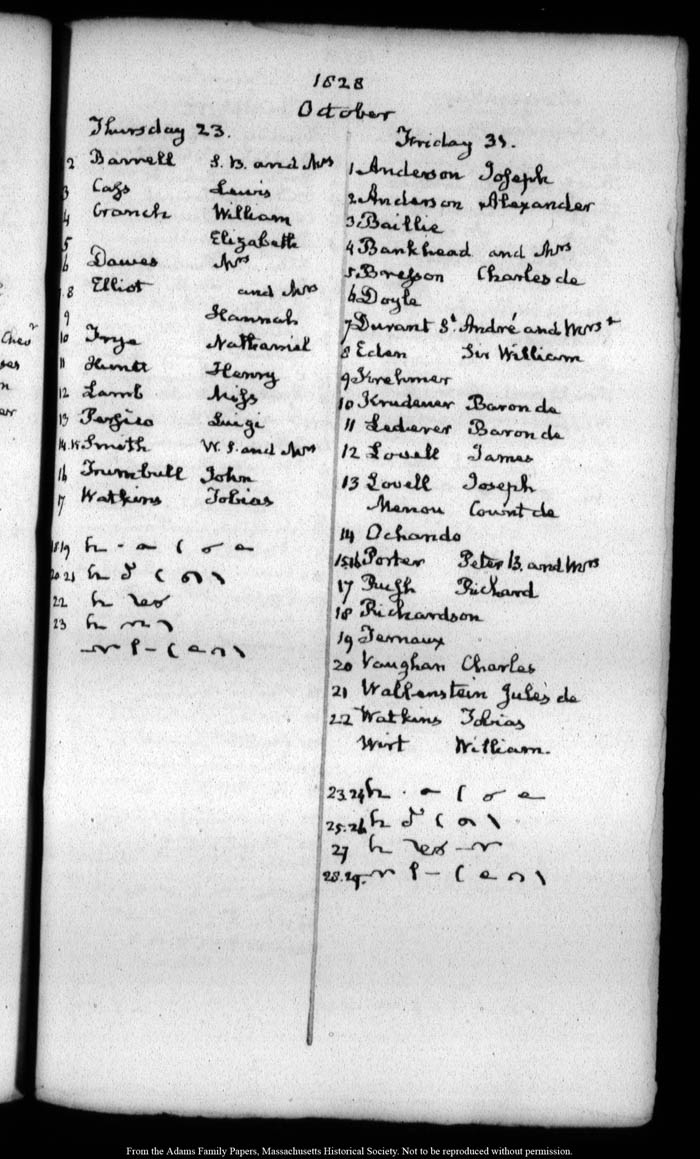 1828
October
Thursday 23.
2 Barrell S. B. and Mrs
3 Cass Lewis
4 Cranch William
5 Elizabeth
6 Dawes Mrs
7.8 Elliot and Mrs
9 Hannah
10 Frye Nathaniel
11 Huntt Henry
12 Lamb Miss
13 Persico Luigi
14.15 Smith W. S. and Mrs
16 Trumbull John
17 Watkins Tobias
18.19
20 21
22
23
Friday 31.
1 Anderson Joseph
2 Anderson Alexander
3 Baillie
4 Bankhead and Mrs
5 Bresson Charles de
6 Doyle
7 Durant St. André and Mrs
8 Eden Sir William
9 Krehmer
10 Krudener Baron de
11 Lederer Baron de
12 Lovell James
13 Lovell Joseph
Menou Count de
14 Ochando
15 16 Porter Peter B. and Mrs
17 Pugh Richard
18 Richardson
19 Ternaux
20 Vaughan Charles
21 Wallenstein Jules de
22 Watkins Tobias
Wirt William.
23.24
25.26
27
28.29.
From the Adams Family Papers, Massachusetts Historical Society. Not to be reproduced without permission.